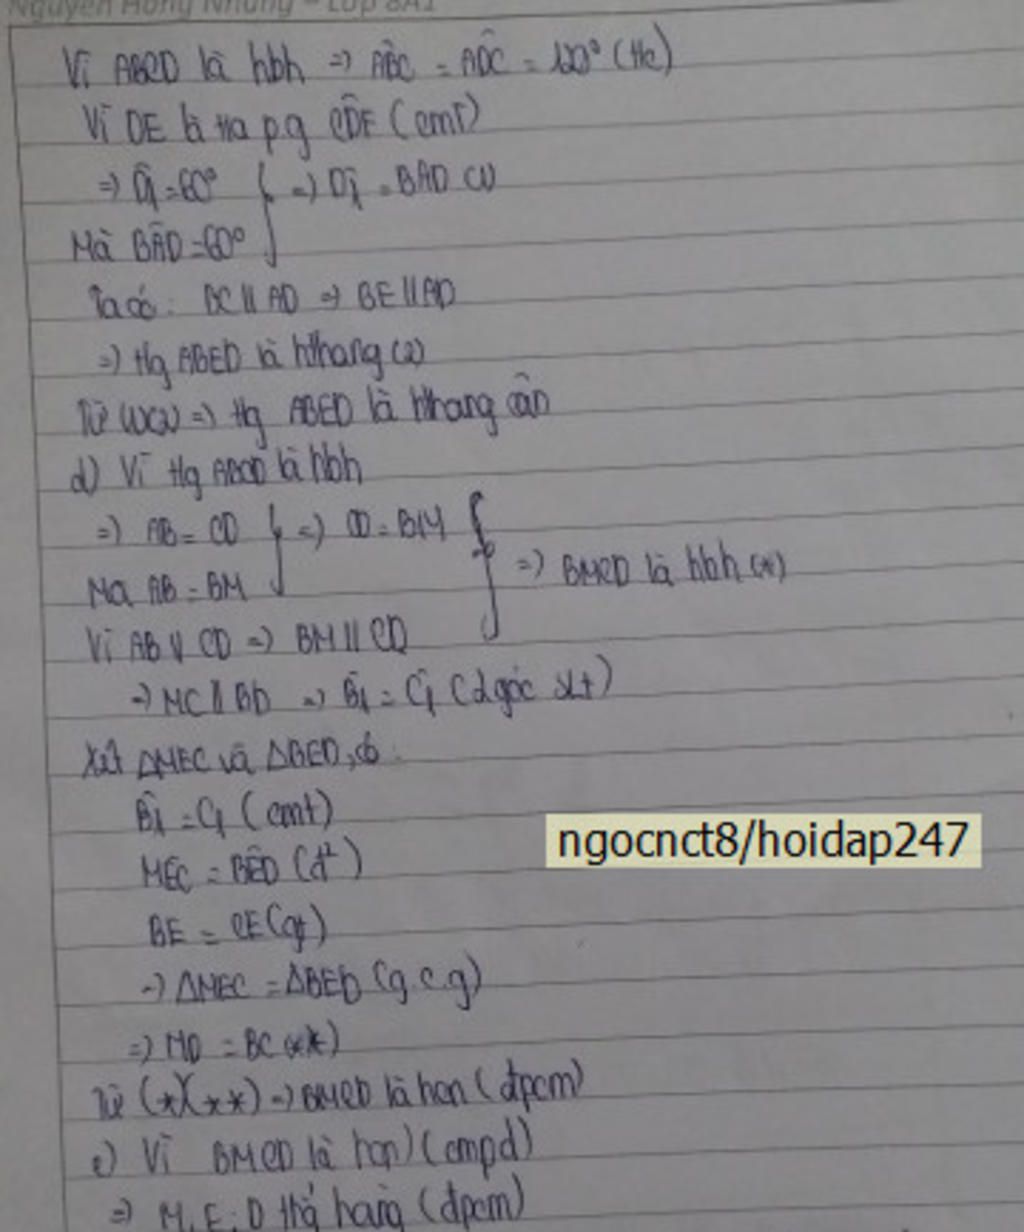 Nguyễn Hồng Nhung - Lớp 8A1
Vì ABCD là hbh => ABC = ADC = 120° (t/c)
Vì DE là tia p.g CDF (cmt)
=> D1 = 60° } => D1 = BAD (1)
Mà BAD = 60°
Ta có: BC // AD => BE // AD
=> tg ABED là hthang (2)
Từ (1)(2) => tg ABED là hthang cân
d) Vì tg ABCD là hbh
=> AB = CD } => CD = BM }
Mà AB = BM => BMCD là hbh (*)
Vì AB // CD => BM // CD
=> MC // BD => B1 = C1 (2 góc slt)
Xét ΔMEC và ΔBED, có:
B1 = C1 (cmt)
MEC = BED (đ²)
BE = CE (gt)
=> ΔMEC = ΔBED (g.c.g)
=> MD = BC (**)
Từ (*)(**) => BMCD là hcn (đpcm)
e) Vì BMCD là hcn (cmpd)
=> M, E, D thẳ hàng (đpcm)
ngocnct8/hoidap247